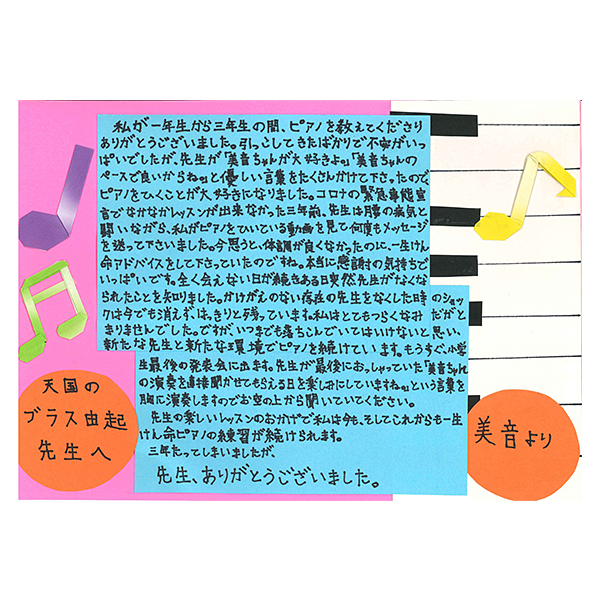 私が一年生から三年生の間、ピアノを教えてくださり
ありがとうございました。引っこしてきたばかりで不安がいっ
ぱいでしたが、先生が「美音ちゃんが大好きよ。」「美音ちゃんの
ペースで良いからね。」と優しい言葉をたくさんかけて下さったので
ピアノをひくことが大好きになりました。コロナの緊急事態宣
言でなかなかレッスンが出来なかった三年前、先生は膵の病気と
闘いながら、私がピアノをひいている動画を見て何度もメッセージ
を送って下さいました。今思うと、体調が良くなかったのに、一生けん
命アドバイスをして下さっていたのですね。本当に感謝の気持ちで
いっぱいです。全く会えない日が続きある日突然先生がなくな
られたことを知りました。かけがえのない存在の先生をなくした時のショッ
クは今でも消えず、はっきりと残っています。私はとてもつらくなみだがと
まりませんでした。ですが、いつまでも落ちこんでいてはいけないと思い、
新たな先生と新たな環境でピアノを続けています。もうすぐ、小学
生最後の発表会に出ます。先生が最後におっしゃっていた「美音ちゃん
の演奏を直接聞かせてもらえる日を楽しみにしていますね。」という言葉を
胸に演奏しますのでお空の上から聞いていてください。
先生の楽しいレッスンのおかげで私は今も、そしてこれからも一生
けん命ピアノの練習が続けられます。
三年たってしまいましたが、
先生、ありがとうございました。
天国の
ブラス由起
先生へ
美音より